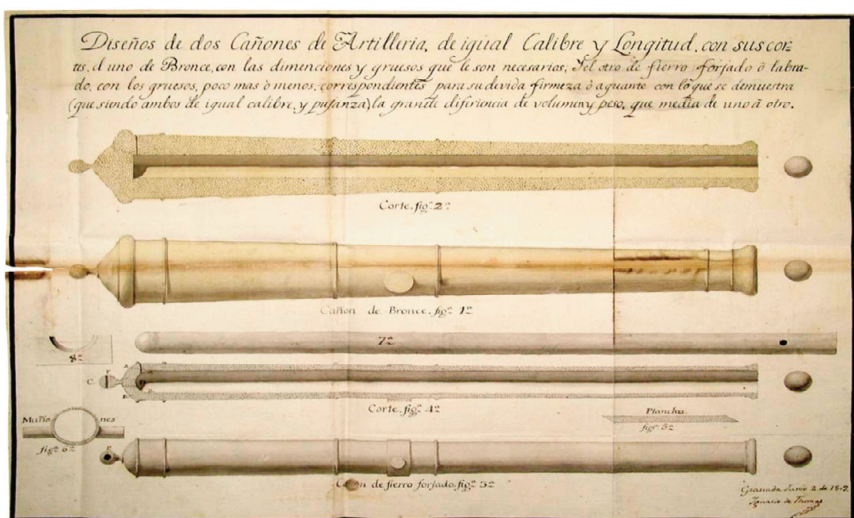 Diseños de dos Cañones de Artilleria, de igual Calibre y Longitud, con sus cor-
tes, el uno de Bronce, con las dimenciones y gruesos que le son necesarias, Y el otro de fierro forjado ò labra-
do, con los gruesos, poco mas ò menos, correspondientes para su devida firmeza ò aguante con lo que se demuestra
(que siendo ambos de igual calibre, y pujanza) la grande diferiencia de volumen y peso, que media de uno â otro.
Corte. figª. 2ª
Cañon de Bronce. figª. 1ª
8ª
7ª
C. F
Corte. figª. 4ª
Plancha
figª. 5ª
Muño nes
figª. 6ª
F
Cañon de fierro forjado. figª. 3ª
Granada Junio 2 de
Ignacio de Thomas